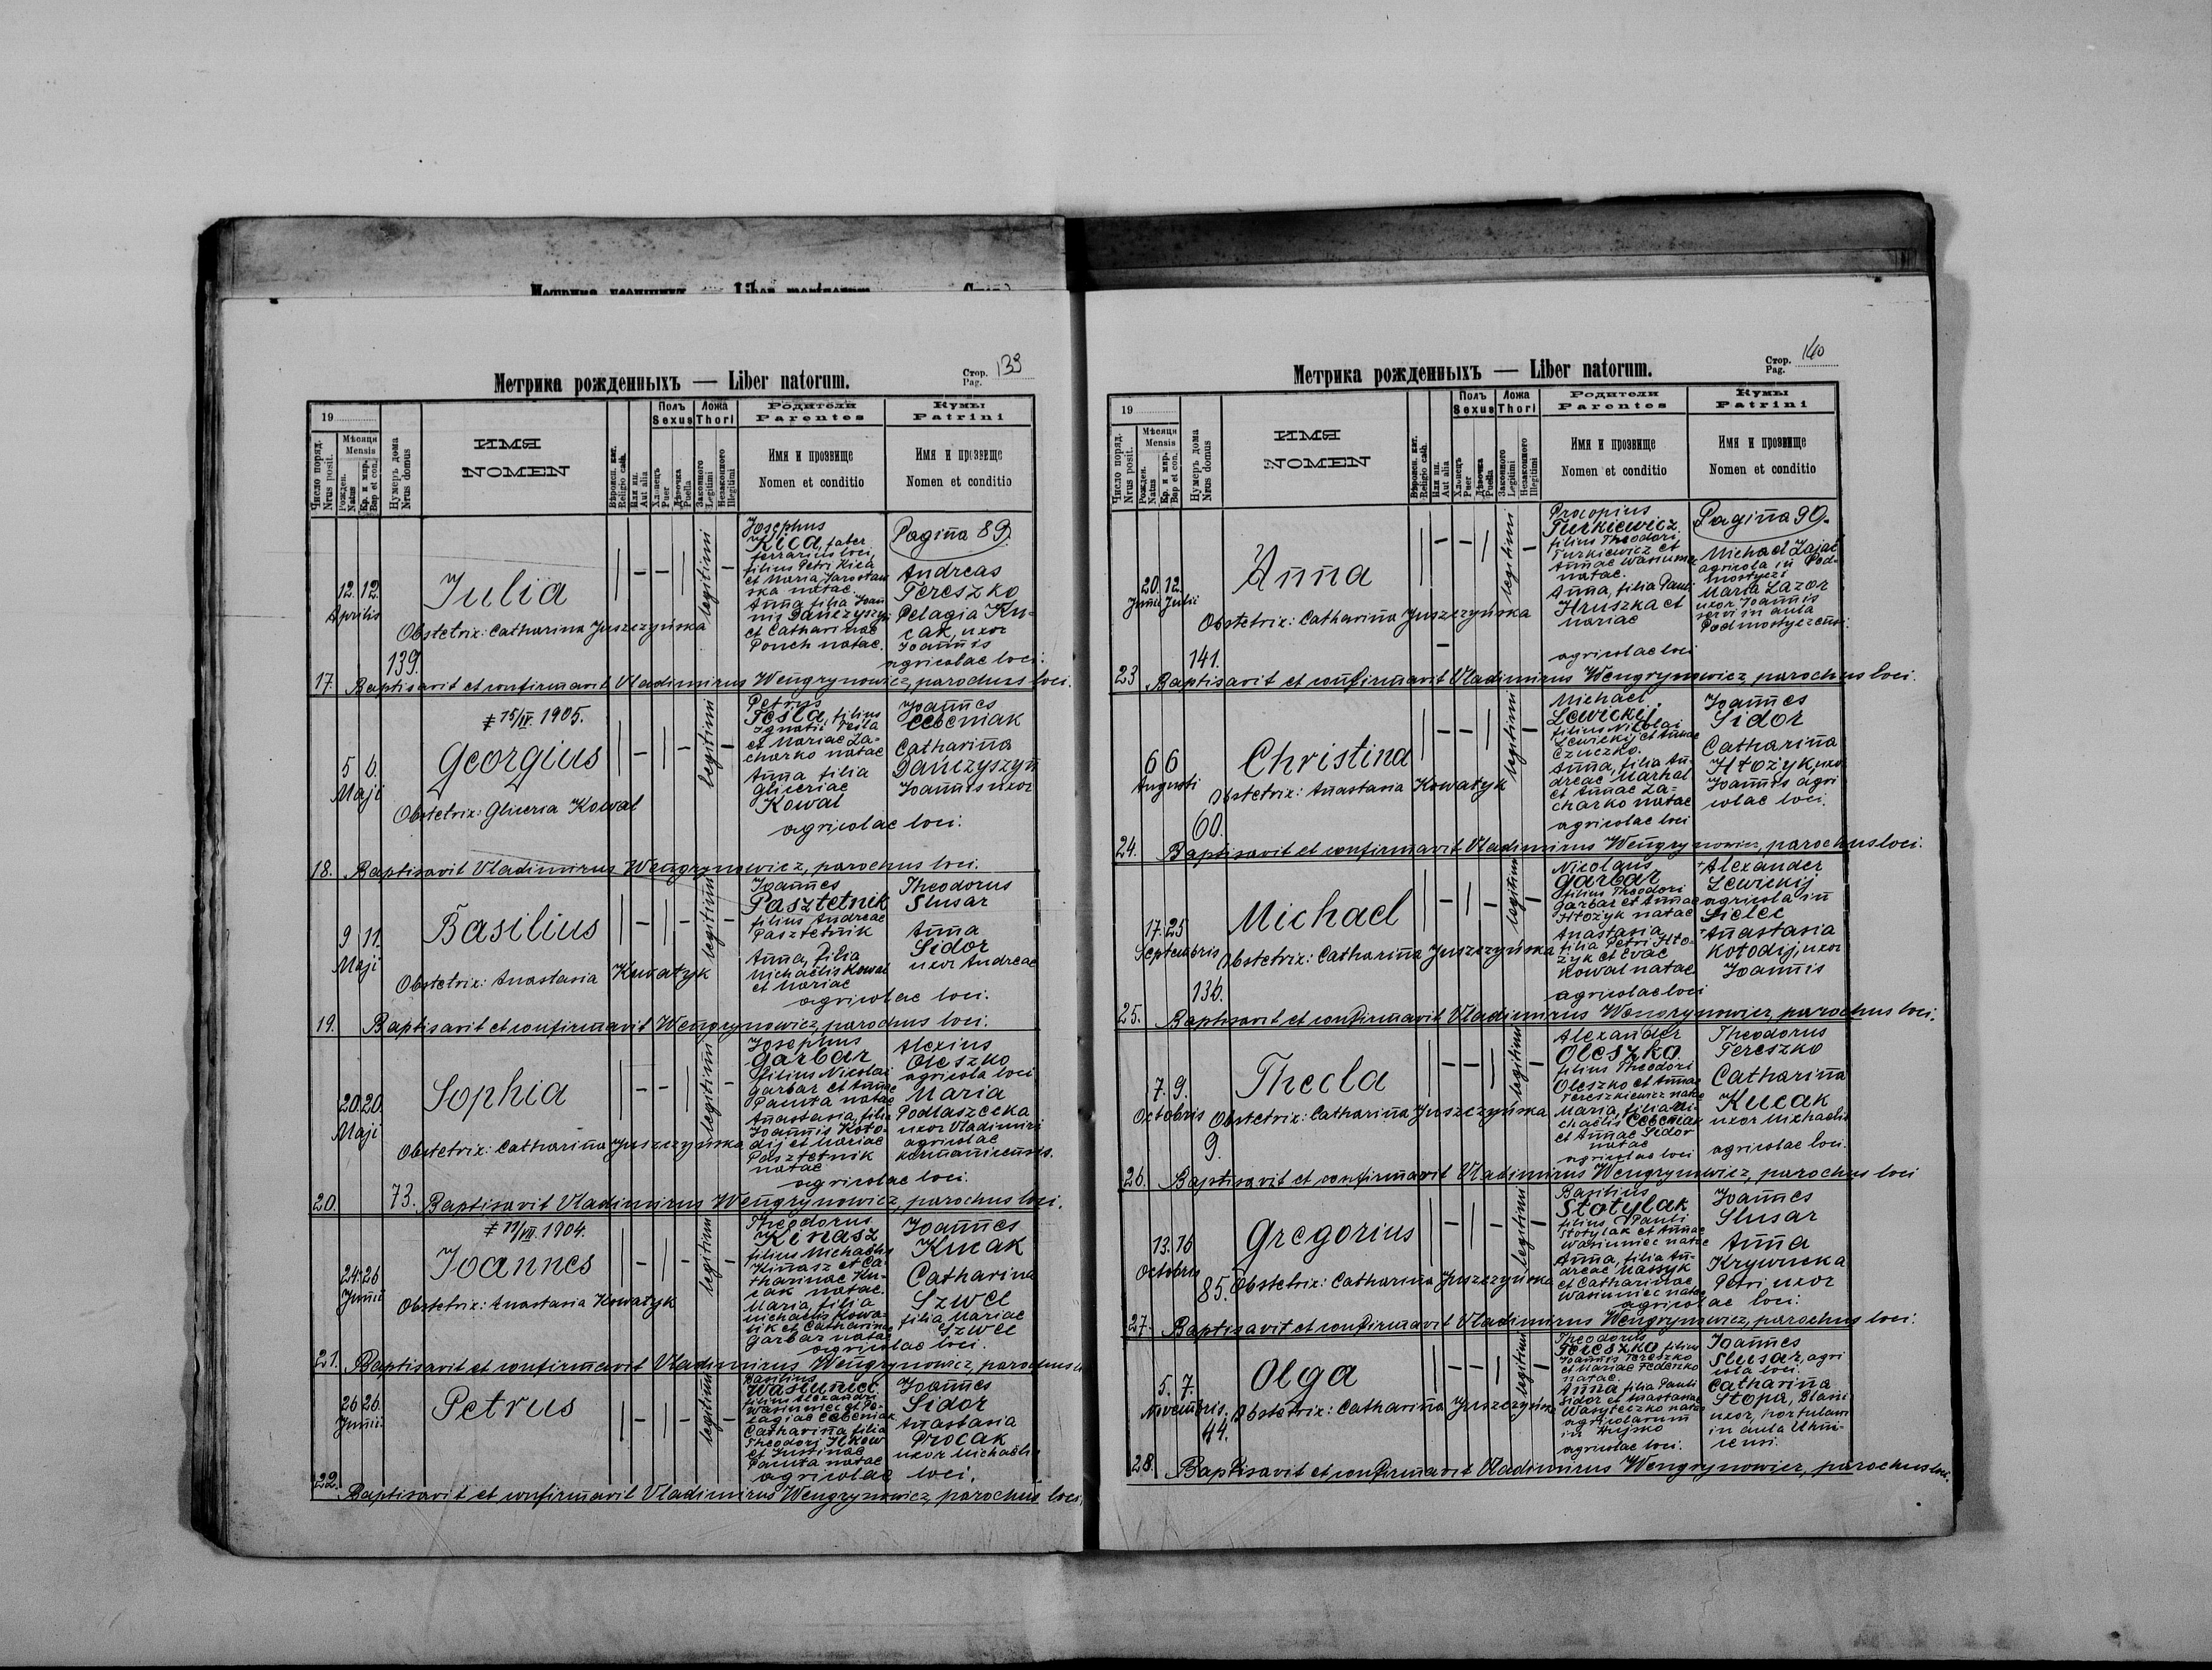 Метрика рожденныхъ — Liber natorum.
Стор. Pag. 139
19
Число поряд. Nrus posit.
Мѣсяця Mensis
Рожден. Natus
Кр. и мир. Bap et con.
Нумеръ дома Nrus domus
ИМЯ
NOMEN
Вѣроисп. кат. Religio cath.
Или ин. Aut alia
Полъ Sexus
Хлопецъ Puer
Дѣвочка Puella
Ложа Thori
Законного Legitimi
Незаконного Illegitimi
Родители
Parentes
Имя и прозвище
Nomen et conditio
Кумы
Patrini
Имя и прозвище
Nomen et conditio
12. 12.
Aprilis
Julia
legitimi
Josephus
Kica, faber
ferrarius loci,
filius Petri Kica
et Maria Jarosław
ska natae.
Anna filia Joan
nis Dańczyszyn
et Catharinae
Pouch natae.
Pagina 89.
Andreas
Tereszko
Pelagia Ku-
cak, uxor
Joannis
agricolae loci.
Obstetrix: Catharina Juszczyńska
139.
17. Baptisavit et confirmavit Vladimirus Wengrynowicz, parochus loci.
‡ 15/IV. 1905.
5 6.
Maji
Georgius
legitimi
Petrus
Tesla, filius
Ignatii Tesla
et Mariae Za-
charko natae
Anna filia
Gliceriae
Kowal
agricolae loci.
Joannes
Cebeniak
Catharina
Dańczyszyn
Joannis uxor
Obstetrix: Gliceria Kowal
18. Baptisavit Vladimirus Wengrynowicz, parochus loci.
9 11.
Maji
Basilius
legitimi
Joannes
Pasztetnik
filius Andreae
Pasztetnik
Anna, filia
Michaelis Kowal
et Mariae
agricolae loci.
Theodorus
Slusar
Anna
Sidor
uxor Andreae
Obstetrix: Anastasia Kowatyk
19. Baptisavit et confirmavit Wengrynowicz, parochus loci.
20. 20.
Maji
Sophia
legitimi
Josephus
Garbar
filius Nicolai
Garbar et Annae
Pauta natae
Anastasia, filia
Joannis Koło-
dij et Mariae
Pasztetnik
natae
agricolae loci.
Alexius
Oleszko
agricola loci
Maria
Podlaszecka
uxor Vladimiri
agricolae
Obstetrix: Catharina Juszczyńska
20. 73. Baptisavit Vladimirus Wengrynowicz, parochus loci.
‡ 11/VII. 1904.
24. 26
Junii
Joannes
legitimi
Theodorus
Kinasz
filius Michaelis
Kinasz et Ca-
tharinae Ku-
cak natae.
Maria, filia
Michaelis Kowa-
lik et Catharinae
Garbar natae
agricolae loci.
Joannes
Kucak
Catharina
Szwel
filia Mariae
Szwel
Obstetrix: Anastasia Kowatyk
21. Baptisavit et confirmavit Vladimirus Wengrynowicz, parochus
26 26.
Junii
Petrus
legitimi
Basilius
Wasiuniec
filius Alexandri
Wasiuniec et Pe-
lagiae Cebeniak
Catharina filia
Theodori Ilkow
et Justinae
Pauta natae
agricolae loci.
Joannes
Sidor
Anastasia
Procak
uxor Michaelis
22. Baptisavit et confirmavit Vladimirus Wengrynowicz, parochus loci.
Метрика рожденныхъ — Liber natorum.
Стор. Pag. 140
19
Число поряд. Nrus posit.
Мѣсяця Mensis
Рожден. Natus
Кр. и мир. Bap et con.
Нумеръ дома Nrus domus
ИМЯ
NOMEN
Вѣроисп. кат. Religio cath.
Или ин. Aut alia
Полъ Sexus
Хлопецъ Puer
Дѣвочка Puella
Ложа Thori
Законного Legitimi
Незаконного Illegitimi
Родители
Parentes
Имя и прозвище
Nomen et conditio
Кумы
Patrini
Имя и прозвище
Nomen et conditio
20. 12.
Junii Julii
Anna
legitimi
Procopius
Turkiewicz
filius Theodori
Turkiewicz et
Annae Wasiuniec
natae.
Anna, filia Pauli
Hruszka et
Mariae
agricolae loci
Pagina 90.
Michael Zajac
agricola in Pod-
mostyczi
Maria Lazor
uxor Joannis
servi in aula
Podmostyczensi.
Obstetrix: Catharina Juszczyńska
141.
23 Baptisavit et confirmavit Vladimirus Wengrynowicz parochus loci.
6 6
Augusti
Christina
legitimi
Michael
Lewickij
filius Nicolai
Lewickij et Annae
Czuczko.
Anna, filia An-
dreae Marhal
et Annae Za-
charko natae
agricolae loci
Joannes
Sidor
Catharina
Hłożyk, uxor
Joannis agri
colae loci.
Obstetrix: Anastasia Kowatyk
60.
24. Baptisavit et confirmavit Vladimirus Wengrynowicz, parochus loci.
17. 25
Septembris
Michael
legitimi
Nicolaus
Garbar
filius Theodori
Garbar et Annae
Hłożyk natae
Anastasia
filia Petri Hło-
żyk et Evae
Kowal natae
agricolae loci
+Alexander
Lewickij
agricola in
Sielec
+Anastasia
Kołodij, uxor
Joannis
Obstetrix: Catharina Juszczyńska
136.
25. Baptisavit et confirmavit Vladimirus Wengrynowicz, parochus loci.
7. 9.
Octobris
Thecla
legitimi
Alexander
Oleszko
filius Theodori
Oleszko et Annae
Tereszkiewicz natae
Maria, filia Mi-
chaelis Cebeniak
et Annae Sidor
natae
agricolae loci
Theodorus
Tereszko
Catharina
Kucak
uxor Michaelis
agricolae loci.
Obstetrix: Catharina Juszczyńska
9.
26. Baptisavit et confirmavit Vladimirus Wengrynowicz, parochus loci
13. 16
Octobris
Gregorius
legitimi
Basilius
Stotylak
filius Pauli
Stotylak et Annae
Wasiuniec natae
Anna, filia An-
dreae Massyk
et Catharinae
Wasiuniec natae
agricolae loci.
Joannes
Slusar
Anna
Krywucka
Petri uxor
85. Obstetrix: Catharina Juszczyńska
27. Baptisavit et confirmavit Vladimirus Wengrynowicz, parochus loci.
5. 7.
Novembris.
Olga
legitimi
Theodorus
Tereszko filius
Joannis Tereszko
et Mariae Fedenko
natae.
Anna filia Pauli
Sidor et Anastasiae
Wasyteczko natae
agricolarum
in Hujsko
agricolae loci.
Joannes
Slusar, agri
cola loci.
Catharina
Stopa,
uxor,
in aula
Obstetrix: Catharina Juszczyńska
44.
28. Baptisavit et confirmavit Vladimirus Wengrynowicz, parochus loci.